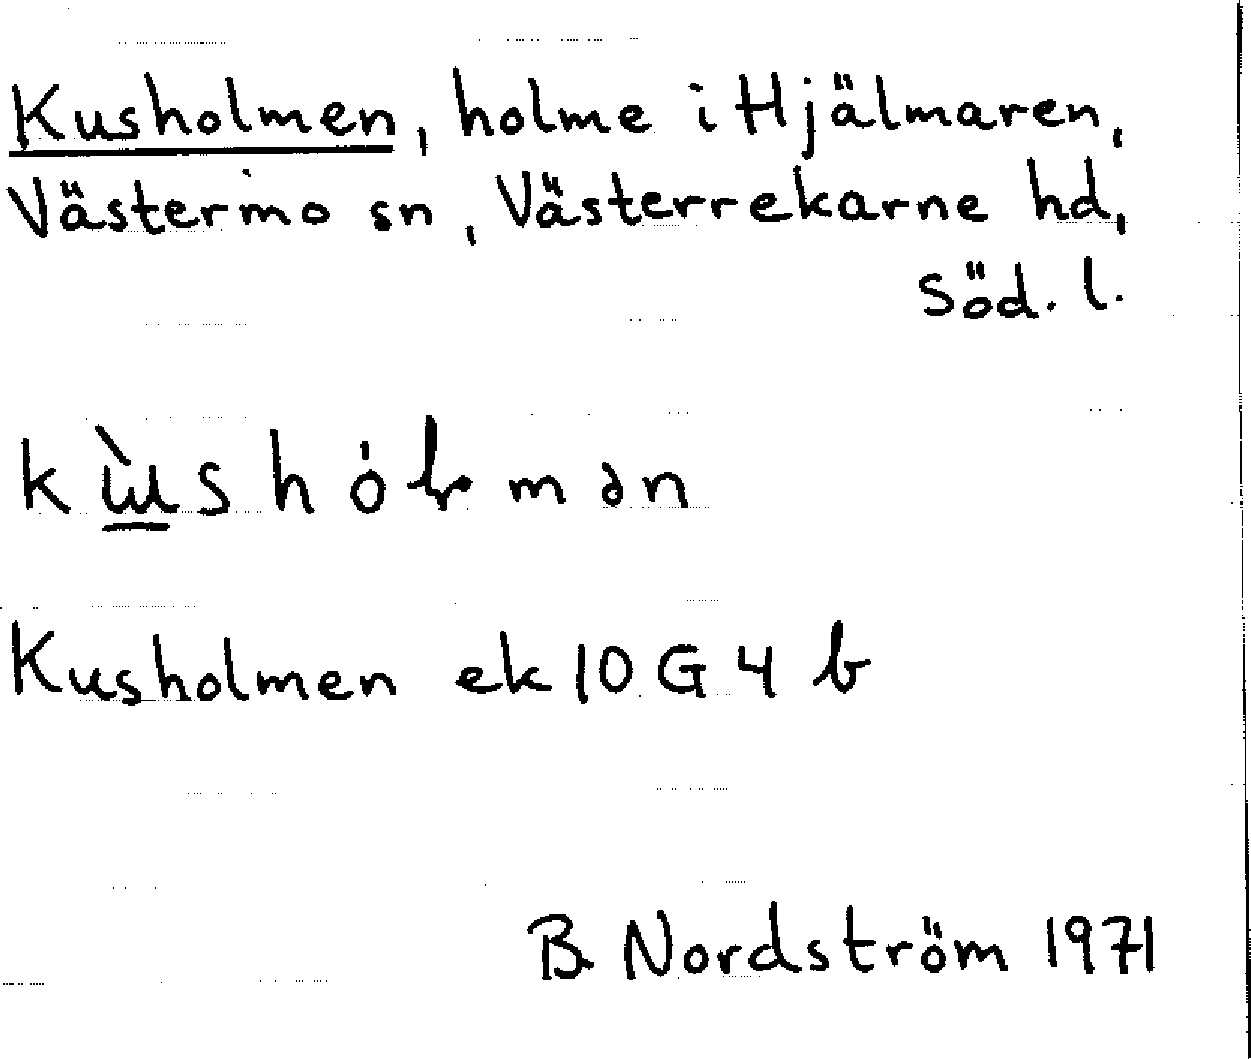 Kusholmen, holme i Hjälmaren,
Västermo sn, Västerrekarne hd,
Söd. l.
kɯ̀shóɫmən
Kusholmen ek 10 G 4 b
B. Nordström 1971